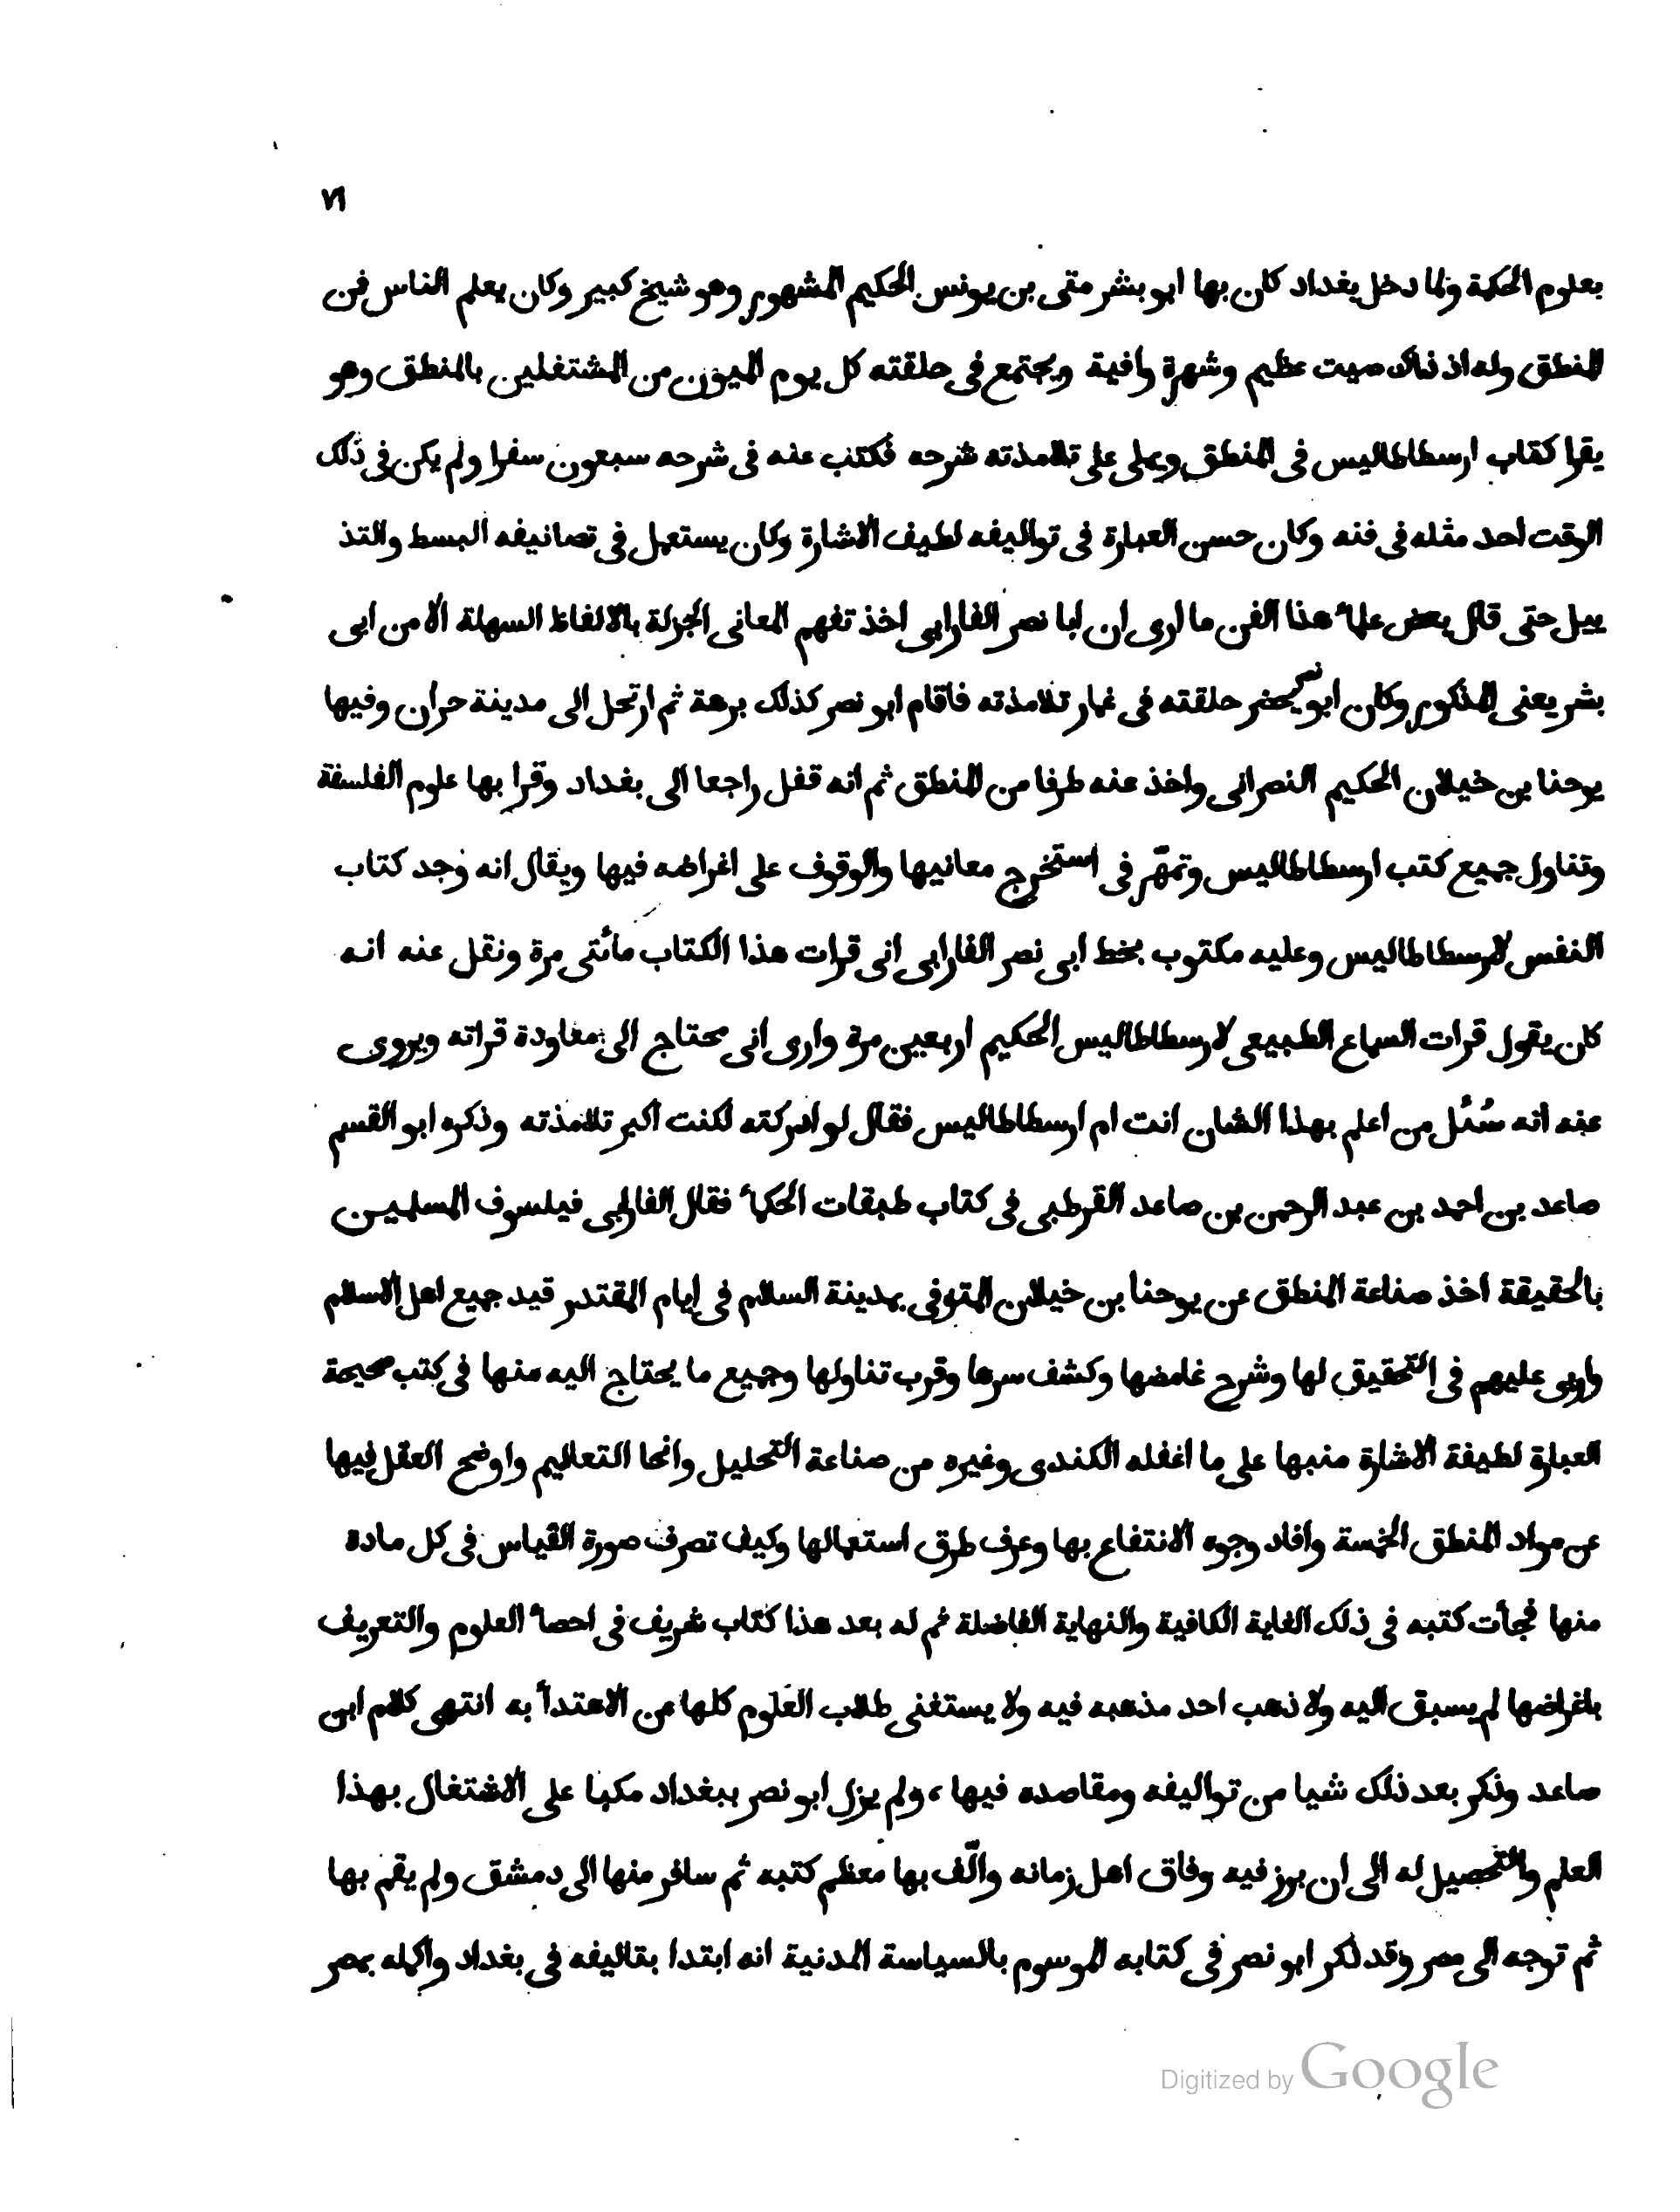 ٧١
بعلوم الحكمة ولما دخل بغداد كان بها ابو بشر متى بن يونس الحكيم المشهور وهو شيخ كبير وكان يعلم الناس فن
المنطق وله اذ ذاك صيت عظيم وشهرة وافية ويجتمع فى حلقته كل يوم الميون من المشتغلين بالمنطق وهو
يقرا كتاب ارسطاطاليس فى المنطق ويملى على تلامذته شرحه فكتب عنه فى شرحه سبعون سفرا ولم يكن فى ذلك
الوقت احد مثله فى فنه وكان حسن العبارة فى تواليفه لطيف الاشارة وكان يستعمل فى تصانيفه البسط والتذ
ييل حتى قال بعض علمأ هذا الفن ما ارى ان ابا نصر الفارابى اخذ تفهم المعانى الجزلة بالالفاظ السهلة الا من ابى
بشر يعنى المذكور وكان ابو نصر يحضر حلقته فى غمار تلامذته فاقام ابو نصر كذلك برهة ثم ارتحل الى مدينة حران وفيها
يوحنا بن خيلان الحكيم النصرانى واخذ عنه طرفا من المنطق ثم انه قفل راجعا الى بغداد وقرا بها علوم الفلسفة
وتناول جميع كتب ارسطاطاليس وتمهّر فى استخرج معانيها والوقوف على اغراضه فيها ويقال انه وجد كتاب
النفس لارسطاطاليس وعليه مكتوب بخط ابى نصر الفارابى انى قرات هذا الكتاب مائتى مرة ونقل عنه انه
كان يقول قرات السماع الطبيعى لارسطاطاليس الحكيم اربعين مرة وارى انى محتاج الى معاودة قراته ويروى
عنه انه سُئل من اعلم بهذا الشان انت ام ارسطاطاليس فقال لو ادركته لكنت اكبر تلامذته وذكره ابو القسم
صاعد بن احمد بن عبد الرحمن بن صاعد القرطبى فى كتاب طبقات الحكمأ فقال الفارابى فيلسوف المسلمين
بالحقيقة اخذ صناعة المنطق عن يوحنا بن خيلان المتوفى بمدينة السلام فى ايام المقتدر قيد جميع اهل الاسلام
واربى عليهم فى التحقيق لها وشرح غامضها وكشف سرها وقرب تناولها وجميع ما يحتاج اليه منها فى كتب صحيحة
العبارة لطيفة الاشارة منبها على ما اغفله الكندى وغيره من صناعة التحليل وانحا التعاليم واوضح العقل فيها
عن مواد المنطق الخمسة وافاد وجوه الانتفاع بها وعرف طرق استعمالها وكيف تصرف صورة القياس فى كل مادة
منها فجأت كتبه فى ذلك الغاية الكافية والنهاية الفاضلة ثم له بعد هذا كتاب شريف فى احصأ العلوم والتعريف
باغراضها لم يسبق اليه ولا ذهب احد مذهبه فيه ولا يستغنى طلاب العلوم كلها عن الاهتدأ به انتهى كلام ابن
صاعد وذكر بعد ذلك شيا من تواليفه ومقاصده فيها، ولم يزل ابو نصر ببغداد مكبا على الاشتغال بهذا
العلم والتحصيل له الى ان برز فيه وفاق اهل زمانه والّف بها معظم كتبه ثم سافر منها الى دمشق ولم يقم بها
ثم توجه الى مصر وقد ذكر ابو نصر فى كتابه الموسوم بالسياسة المدنية انه ابتدا بتاليفه فى بغداد واكمله بمصر
Digitized by Google